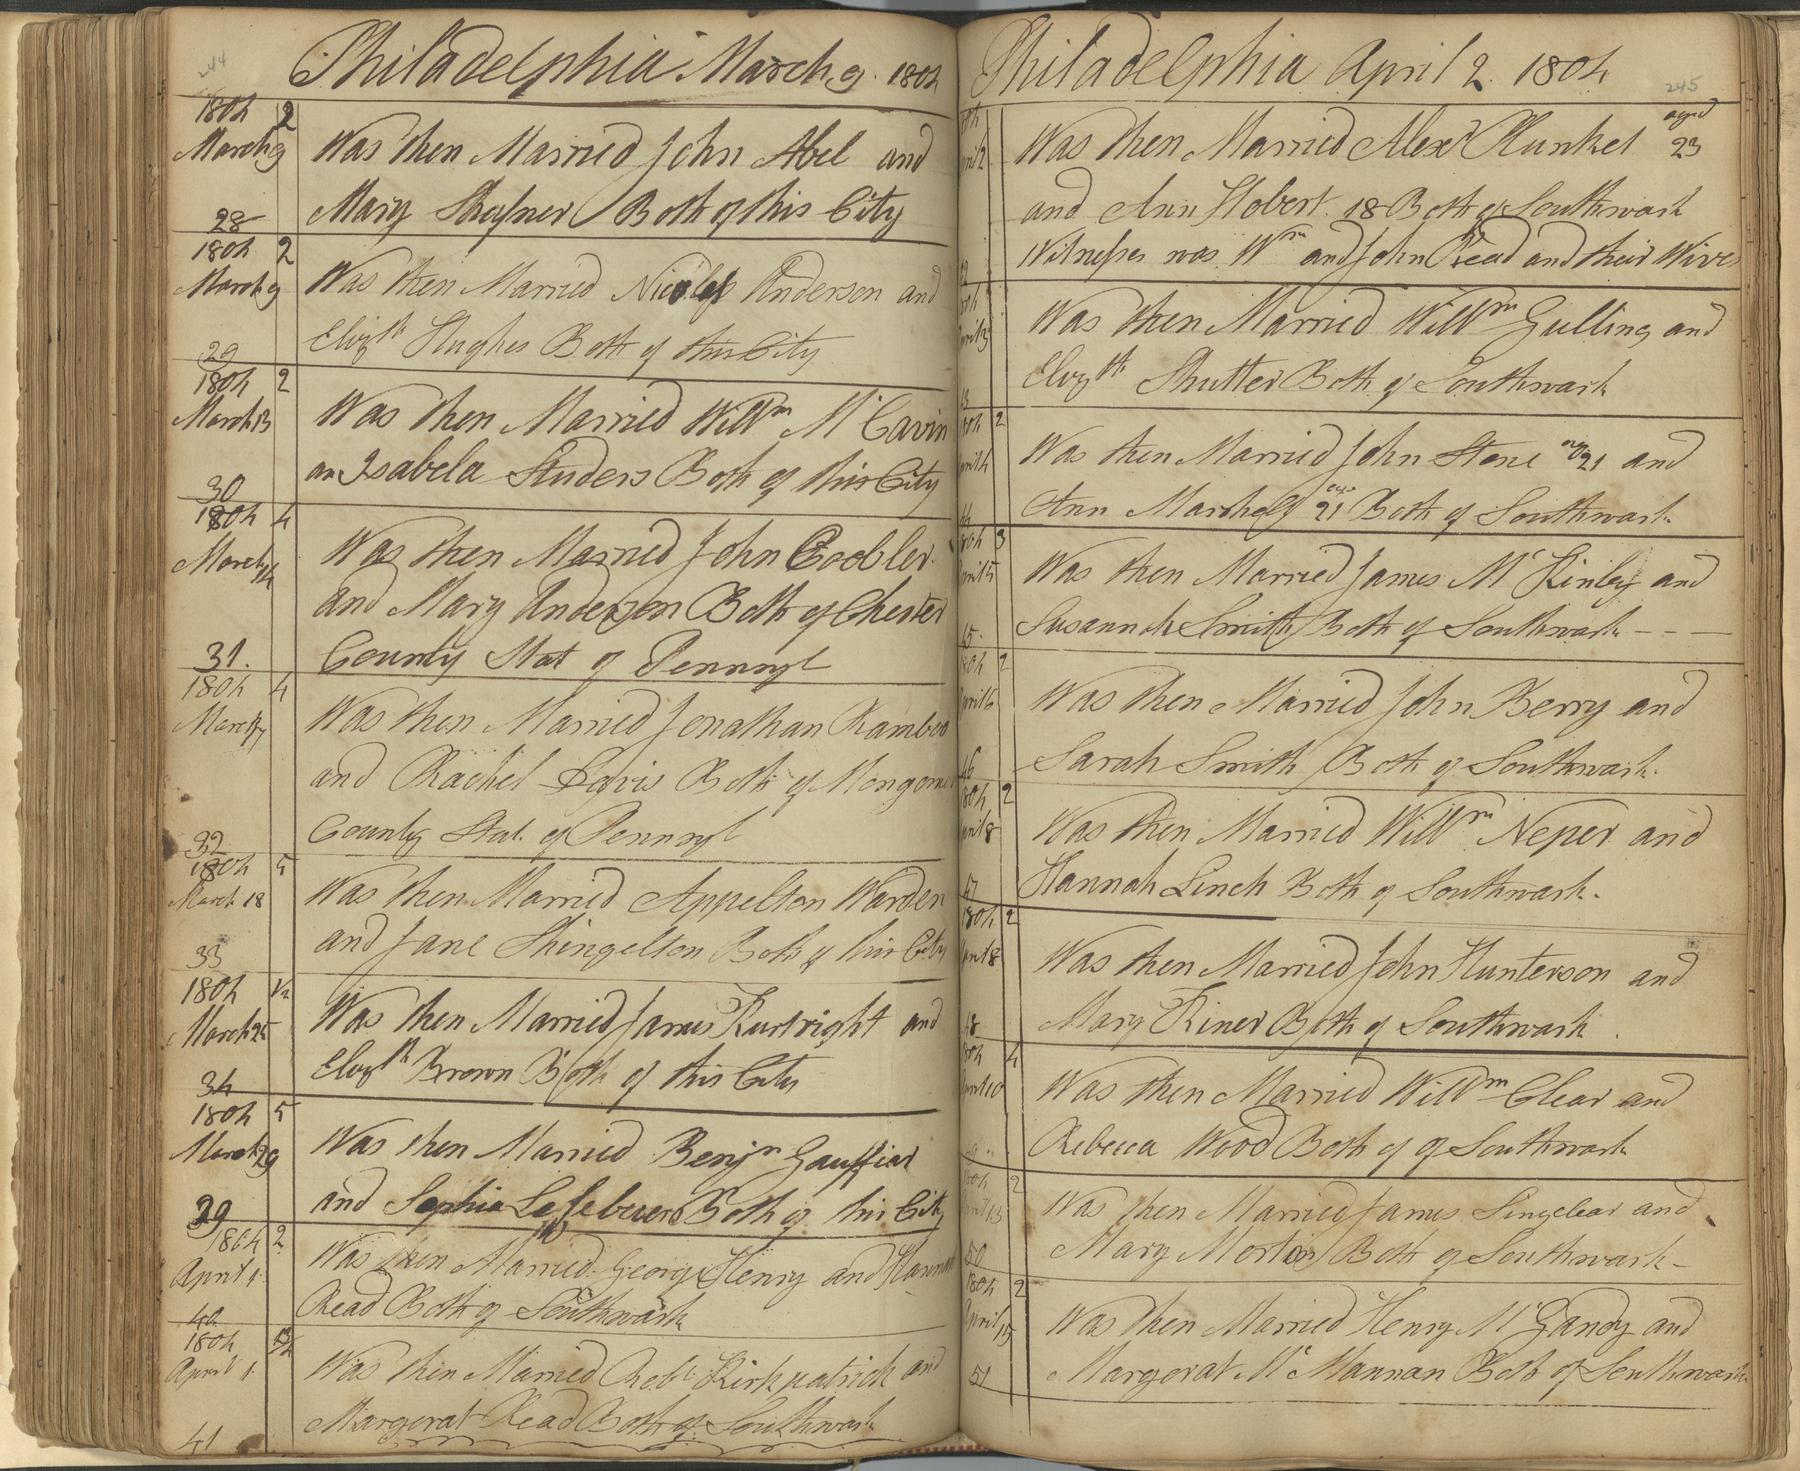 244
Philadelphia March 9. 1804
1804 2
March 9 Was then Married John Abel and
28 Mary Shafner Both of this City
1804 2
March 9 Was then Married Anderson and
29 Elizth Hughes Both of this City
1804 2
March 13 Was then Married Willm Mc Cavin
30 an Isabela Studers Both of this City
1804 4
March 14 Was then Married John Coobler
and Mary Anderson Both of Chester
31. County Stat of Pennsyl
1804 4
March 17 Was then Married Jonathan Ramboo
and Rachel Both of Mongomer
32 County Stat. of Pennsyl
1804 5
March 18 Was then Married Appelton Warden
33 and Jane Shingelton Both of this City
1804
March 25 Was then Married James Kurtright and
34 Elizth Brown Both of this City
1804 5
March 29 Was then Married Benjn Gauffiar
39 and Sophia Lefeberer Both of this City
1804 2
April 1. Was then Married George Henry and Hannah
40 Read Both of Southwark
1804
April 1. Was then Married Robt Kirkpatrick and
41 Margerat Read Both of Southwark
245
Philadelphia April 2. 1804
aged
Was then Married Alexr Hunkel 23
and Ann Hobert. 18 Both of Southwark
Witnesses was Wm and John Read and their Wives
Was then Married Willm Gulling and
Elizth Shutter Both of Southwark
2
Was then Married John Stone age 21 and
Ann 21 Both of Southwark
3
Was then Married James Mc Kinley and
Susannah Smith Both of Southwark - - -
1804 2
Was then Married John Berry and
46 Sarah Smith Both of Southwark.
1804 2
April 8 Was then Married Willm Neper and
47 Hannah Linch Both of Southwark.
1804 2
April 8 Was then Married John Hunterson and
48 Mary Kiner Both of Southwark.
1804 4
April 10 Was then Married Willm Clear and
Rebecca Wood Both of of Southwark
1804 2
April 13 Was then Married James Singclear and
50 Mary Morton Both of Southwark -
1804 2
April 15 Was then Married Henry Mc Gandy and
51 Margerat Mc Mannan Both of Southwark